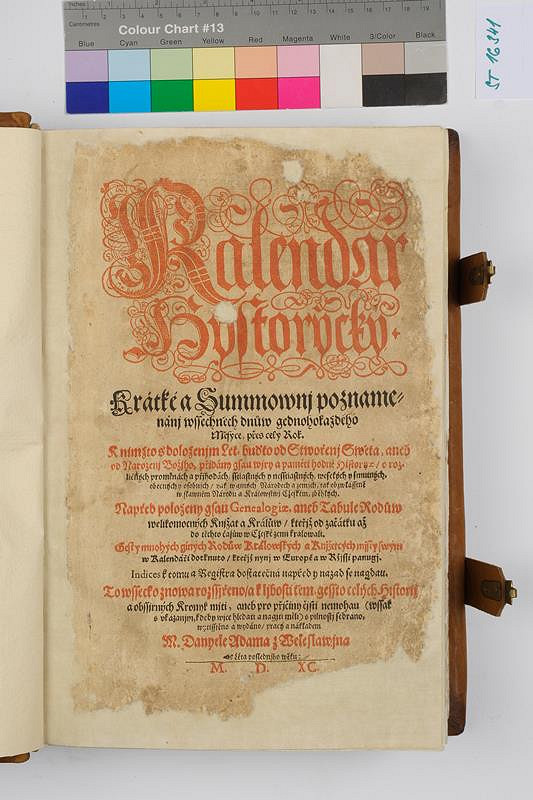 Inches
Centimetres
Colour Chart #13
Blue Cyan Green Yellow Red Magenta White 3/Color Black
ST 16341
Kalendar
Hystorycký.
Krátké a Summownj pozname-
nánj wssechněch dnůw gednohokaždého
Měsýce, přes celý Rok.
K nimžto s doloženjm Let, buďto od Stwořenj Swěta, aneb
od Narozenj Božjho, přidány gsau wjry a paměti hodné Hystorye / o roz-
ličných proměnách a přjhodách, sstiastných y nesstiastných, weselých y smutných,
obecných y osobnjch / yak w giných Národech a zemjch, tak obwzlásstně
w slawném Národu a Králowstwj Cžeském, zběhlých.
Napřed položeny gsau Genealogiæ, aneb Tabule Rodůw
welikomocných Knjžat a Králůw / kteřjž od začátku až
do těchto časůw w Cžeské zemi kralowali.
Gest y mnohých giných Rodůw Králowských a Knjžetcých mjsty swými
w Kalendáři dotknuto / kteřjž nynj w Europě a w Ržjssi panugj.
Indices k tomu a Registra dostatečná napřed y nazad se nagdau.
To wssecko znowa rozssjřeno / a k ljbosti těm, gessto celých Historij
a obssjrných Kronyk mjti, aneb pro přjčiny čjsti nemohau (wssak
s vkázanjm, kdeby wjce hledati a nagjti měli) s pilnostj sebráno,
wytisstěno a wydáno / pracý a nákladem
M. Danyele Adama z Weleslawjna
Léta poslednjho wěku:
M. D. XC.